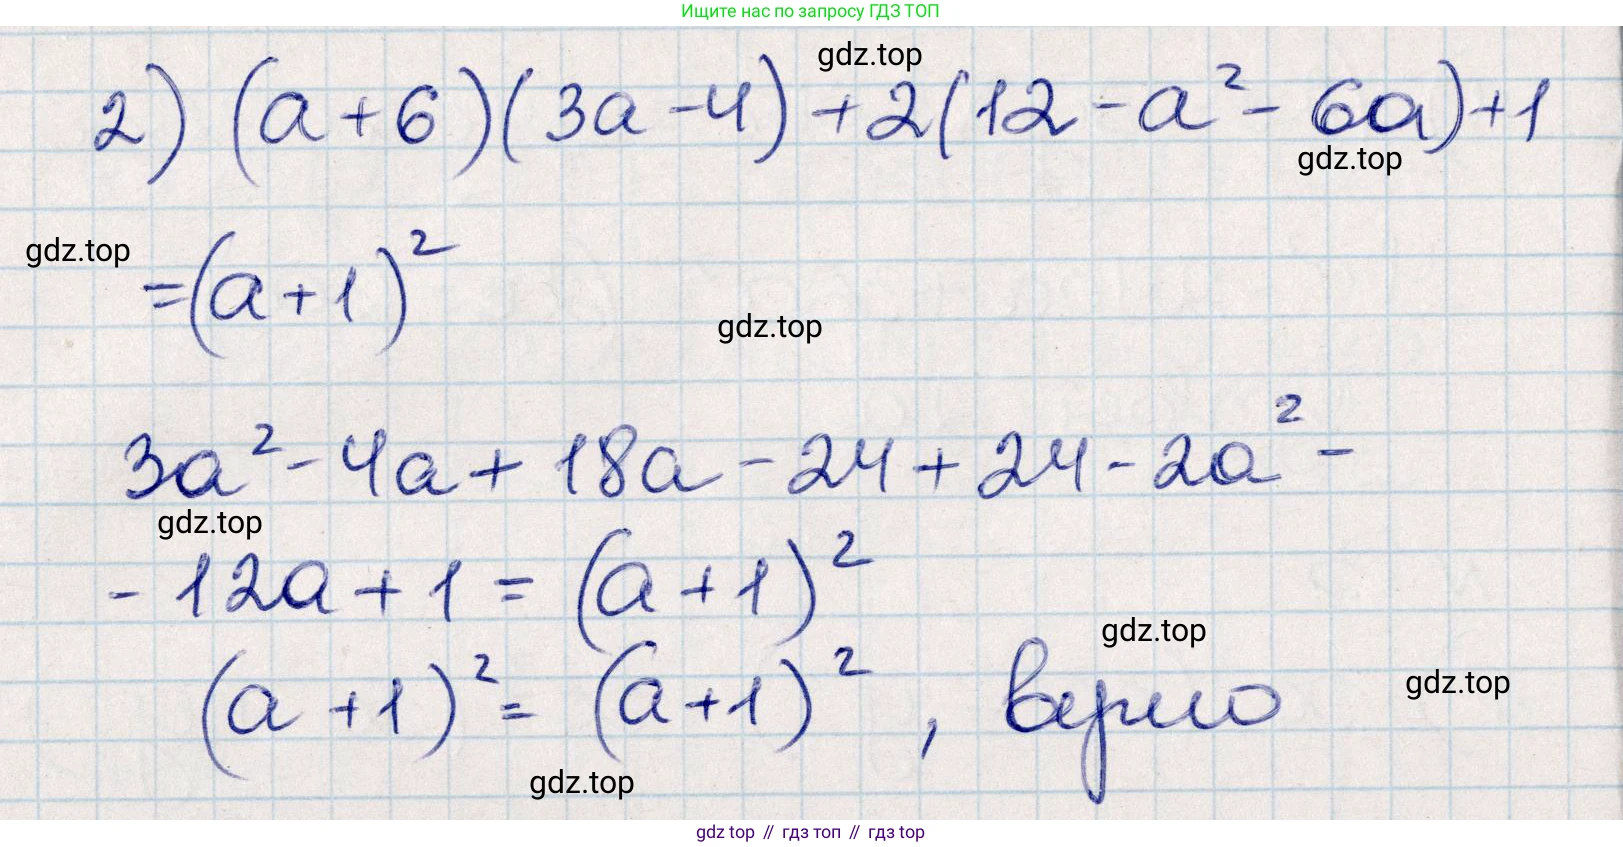 Ищите нас по запросу ГДЗ ТОП
gdz.top
2) (a+6)(3a-4)+2(12-a²-6a)+1
gdz.top
gdz.top
=(a+1)²
gdz.top
3a²-4a+18a-24+24-2a²-
gdz.top
-12a+1=(a+1)²
gdz.top
(a+1)²=(a+1)², верно
gdz.top
gdz.top
gdz top // гдз топ // гдз top